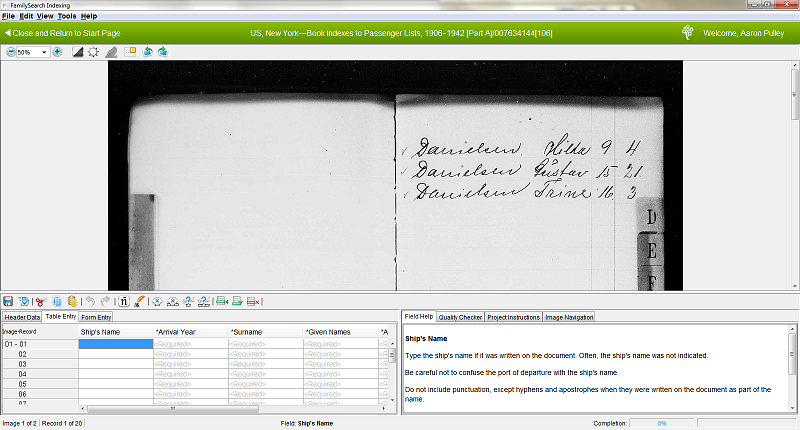 FamilySearch Indexing
File Edit View Tools Help
Close and Return to Start Page
US, New York—Book Indexes to Passenger Lists, 1906-1942 [Part A]/007634144[106]
Welcome, Aaron Pulley
50%
Danielsen Hilda 9 4
Danielsen Gustav 15 21
Danielsen Trine 16 3
D
E
F
Header Data Table Entry Form Entry
Image-Record Ship's Name *Arrival Year *Surname *Given Names *A
01 - 01 <Required> <Required> <Required> <R
02 <Required> <Required> <Required> <R
03 <Required> <Required> <Required> <R
04 <Required> <Required> <Required> <R
05 <Required> <Required> <Required> <R
06 <Required> <Required> <Required> <R
07 <Required> <Required> <Required>
Field Help Quality Checker Project Instructions Image Navigation
Ship's Name
Type the ship's name if it was written on the document. Often, the ship's name was not indicated.
Be careful not to confuse the port of departure with the ship's name.
Do not include punctuation, except hyphens and apostrophes when they were written on the document as part of the
name.
Image 1 of 2 Record 1 of 20 Field: Ship's Name Completion: 0%